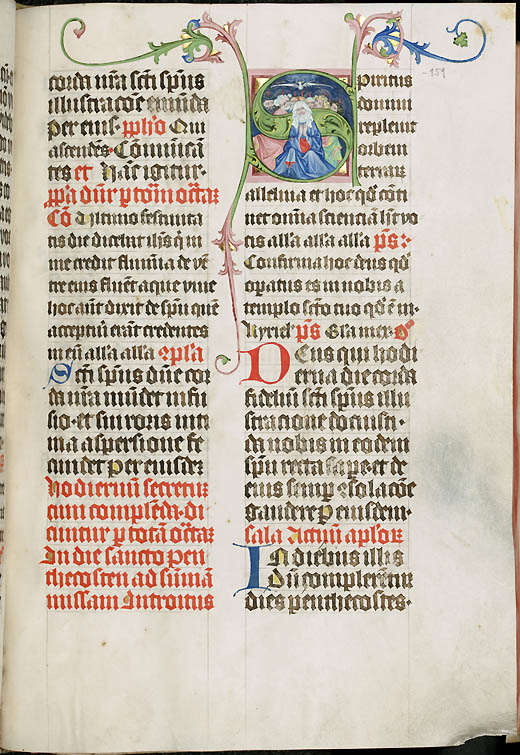 corda nr̄a sctī spūs
illustracōe emūda
Per eius· pplīo Qui
ascendēs· Cōmunicā
tes et Hāc igitur·
pp̄a dn̄r p totā octār
Cō Ultimo festiuita
tis die dicebat ihs̄ q in
me credit flumīa de vē
tre eius fluēt aque viue
hoc aūt dixit de spū quē
acceptur erāt credentes
in eū alla alla cōpla
Sctī spūs dn̄e cor
da nr̄a mūdet infu
sio· et sui roris inti
ma aspersione fe
cūdet per eiusdez
hodiernū secretuz
cum complēda· di
cuntur p totā octār
In die sancto pen
thecosten ad sūmā
missam Introitus
-151
Spiritus
domini
repleuit
orbem
terraru
alleluia et hoc qd̄ cōti
net omnia scienciā h̄z vo
cis alla alla alla ps
Confirma hoc deus qd̄
opatus es in nobis a
templo scto tuo qd̄ ē in·
Kyriel· ps Gla in ex· O
Deus qui hodi
erna die corda
fidelium sctī spūs illu
stracione docuisti·
da nobis in eodem
spū recta sape· et de
eius semp 9solacōe
gaudere P eiusdem·
Actuū aplor
In diebus illis
Dū complerentur
dies penthecostes·